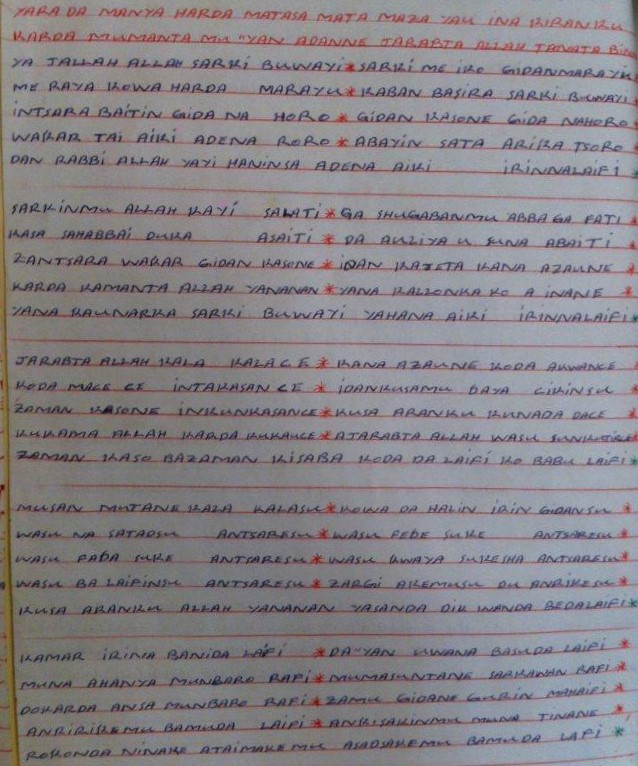 YARA DA MANYA HARDA MATASA MATA MAZA YAU INA KIRANKU
KARDA MUMANTA MU "YAN ADANNE JARABTA ALLAH TANATA BIN
YA JALLAH ALLAH SARKI BUWAYI * SARKI ME IKO GIDANMARAYU
ME RAYA KOWA HARDA MARAYU * KABAN BASIRA SARKI BUWAYI
INTSARA BAITIN GIDA NA HORO * GIDAN KASONE GIDA NAHORO
WAKAR TAI AIKI ADENA RORO * ABAYIN SATA ARIKA TSORO *
DAN RABBI ALLAH YAYI HANINSA ADENA AIKI IRINNALAIFI *
SARKINMU ALLAH KAYI SALATI * GA SHUGABANMU ABBA GA FATI *
KASA SAHABBAI DUKA ASAITI * DA AULIYA U SUNA ABAITI *
ZANTSARA WAKAR GIDAN KASONE * IDAN KAJETA KANA AZAUNE *
KARDA KAMANTA ALLAH YANANAN * YANA KALLONKA KO A INANE *
YANA KAUNARKA SARKI BUWAYI YAHANA AIKI IRINNALAIFI *
JARABTA ALLAH KALA KALACE * KANA AZAUNE KODA AKWANCE *
KODA MACE CE INTAKASANCE * IDANKUSAMU DAYA CIKINSU *
ZAMAN KASONE INKUNKASANCE * KUSA ARANKU KUNADA DACE *
KUKAMA ALLAH KARDA KUKAUCE * AJARABTA ALLAH WASU
ZAMAN KASO BAZAMAN KISABA KODA DA LAIFI KO BABU LAIFI *
MUSAN MUTANE KALA KALASU * KOWA DA HALIN IRIN GIDANSU *
WASU NA SATAOSU ANTSARESU * WASU FEDE SUKE ANTSARESU *
WASU FADA SUKE ANTSARESU * WASU KWAYA SUKESHA ANTSARESU *
WASU BA LAIFINSU ANTSARESU * ZARGI AKEMUSU DU ANRIKESU *
KUSA ARANKU ALLAH YANANAN YASANDA DIK WANDA BEDALAIFI *
KAMAR IRINA BANIDA LAIFI * DA "YAN UWANA BASUDA LAIFI *
MUNA AHANYA MUNBARO RAFI * MUMASUNTANE SARKAWAN RAFI *
DOKARDA ANSA MUNBARO RAFI * ZAMU GIDANE GURIN MAHAIFI *
ANRIRIKEMU BAMUDA LAIFI * ANKISAKINMU MUNA TINANE *
ROKONDA NINAKE ATAIMAKEMU ASADSAKEMU BAMUDA LAFI *